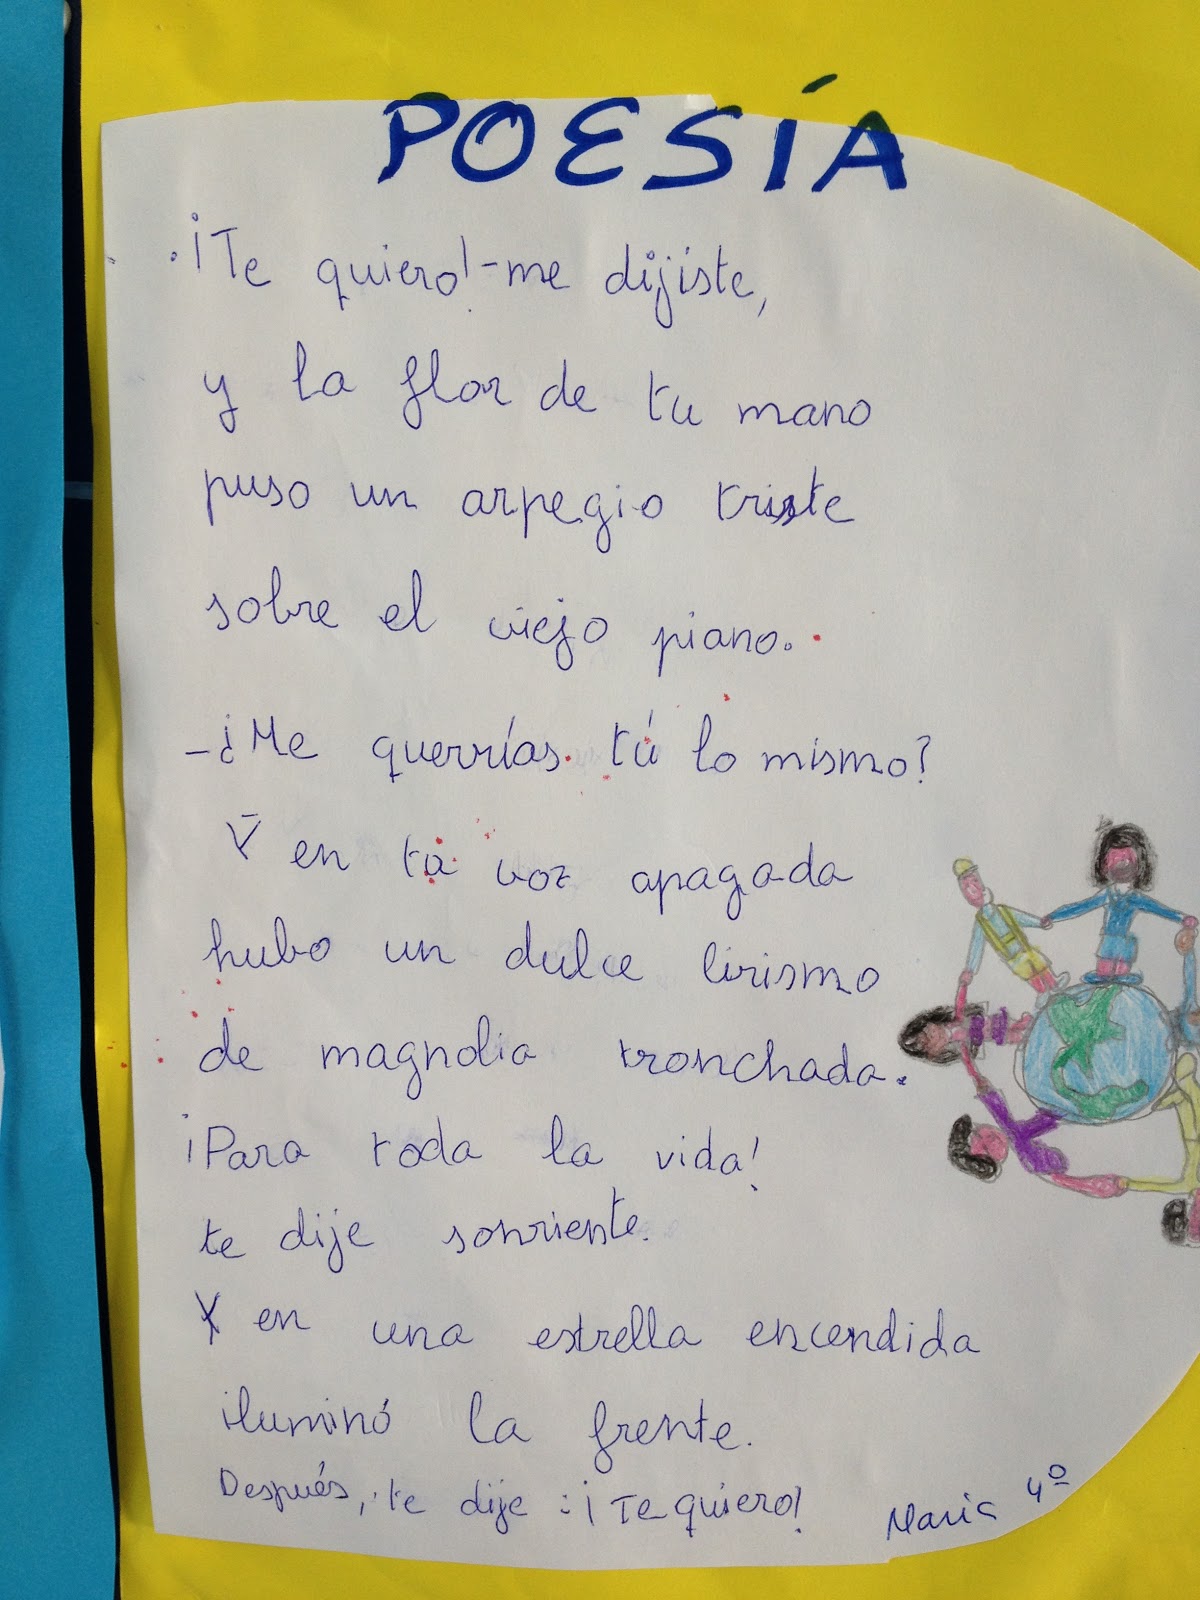 POESÍA
¡Te quiero!-me dijiste,
y la flor de tu mano
puso un arpegio triste
sobre el viejo piano.
-¿Me querrías tú lo mismo?
Y en tu voz apagada
hubo un dulce lirismo
de magnolia tronchada.
¡Para toda la vida!
te dije sonriente.
Y en una estrella encendida
iluminó la frente.
Después, te dije: ¡Te quiero!
Maria 4º